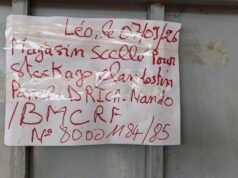 Léo, le 07/09/20
Magasin scellé pour
Stockage clandestin
Par la DRICA-Nando
/BMCRF
N° 80001184/85